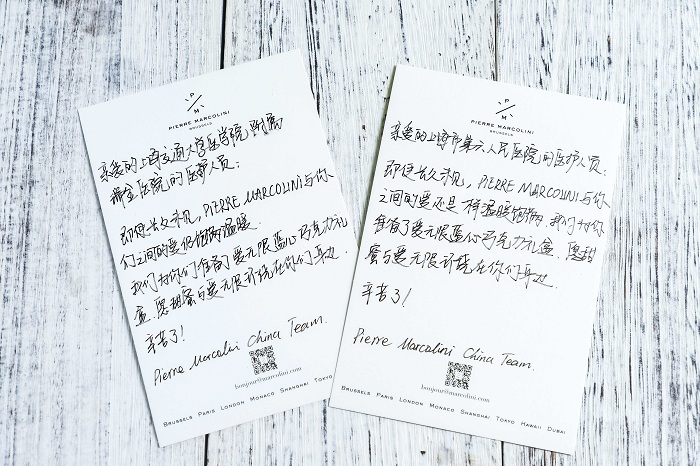 P
M
PIERRE MARCOLINI
BRUSSELS
亲爱的上海交通大学医学院附属
瑞金医院的医护人员：
即使长久未见，PIERRE MARCOLINI与你
们之间的爱仍饱满温暖．
我们为你们准备了爱无限蓝心巧克力礼
盒．愿甜蜜与爱无限环绕在你们身边．
辛苦了！
Pierre Marcolini China Team.
bonjour@marcolini.com
BRUSSELS PARIS LONDON MONACO SHANGHAI TOKYO
P
M
PIERRE MARCOLINI
BRUSSELS
亲爱的上海市第六人民医院的医护人员：
即使长久未见，PIERRE MARCOLINI与你
之间的爱还是一样温暖饱满．我们为你
准备了爱无限蓝心巧克力礼盒．愿甜
蜜与爱无限环绕在你们身边．
辛苦了！
Pierre Marcolini China Team.
bonjour@marcolini.com
BRUSSELS PARIS LONDON MONACO SHANGHAI TOKYO HAWAII DUBAI